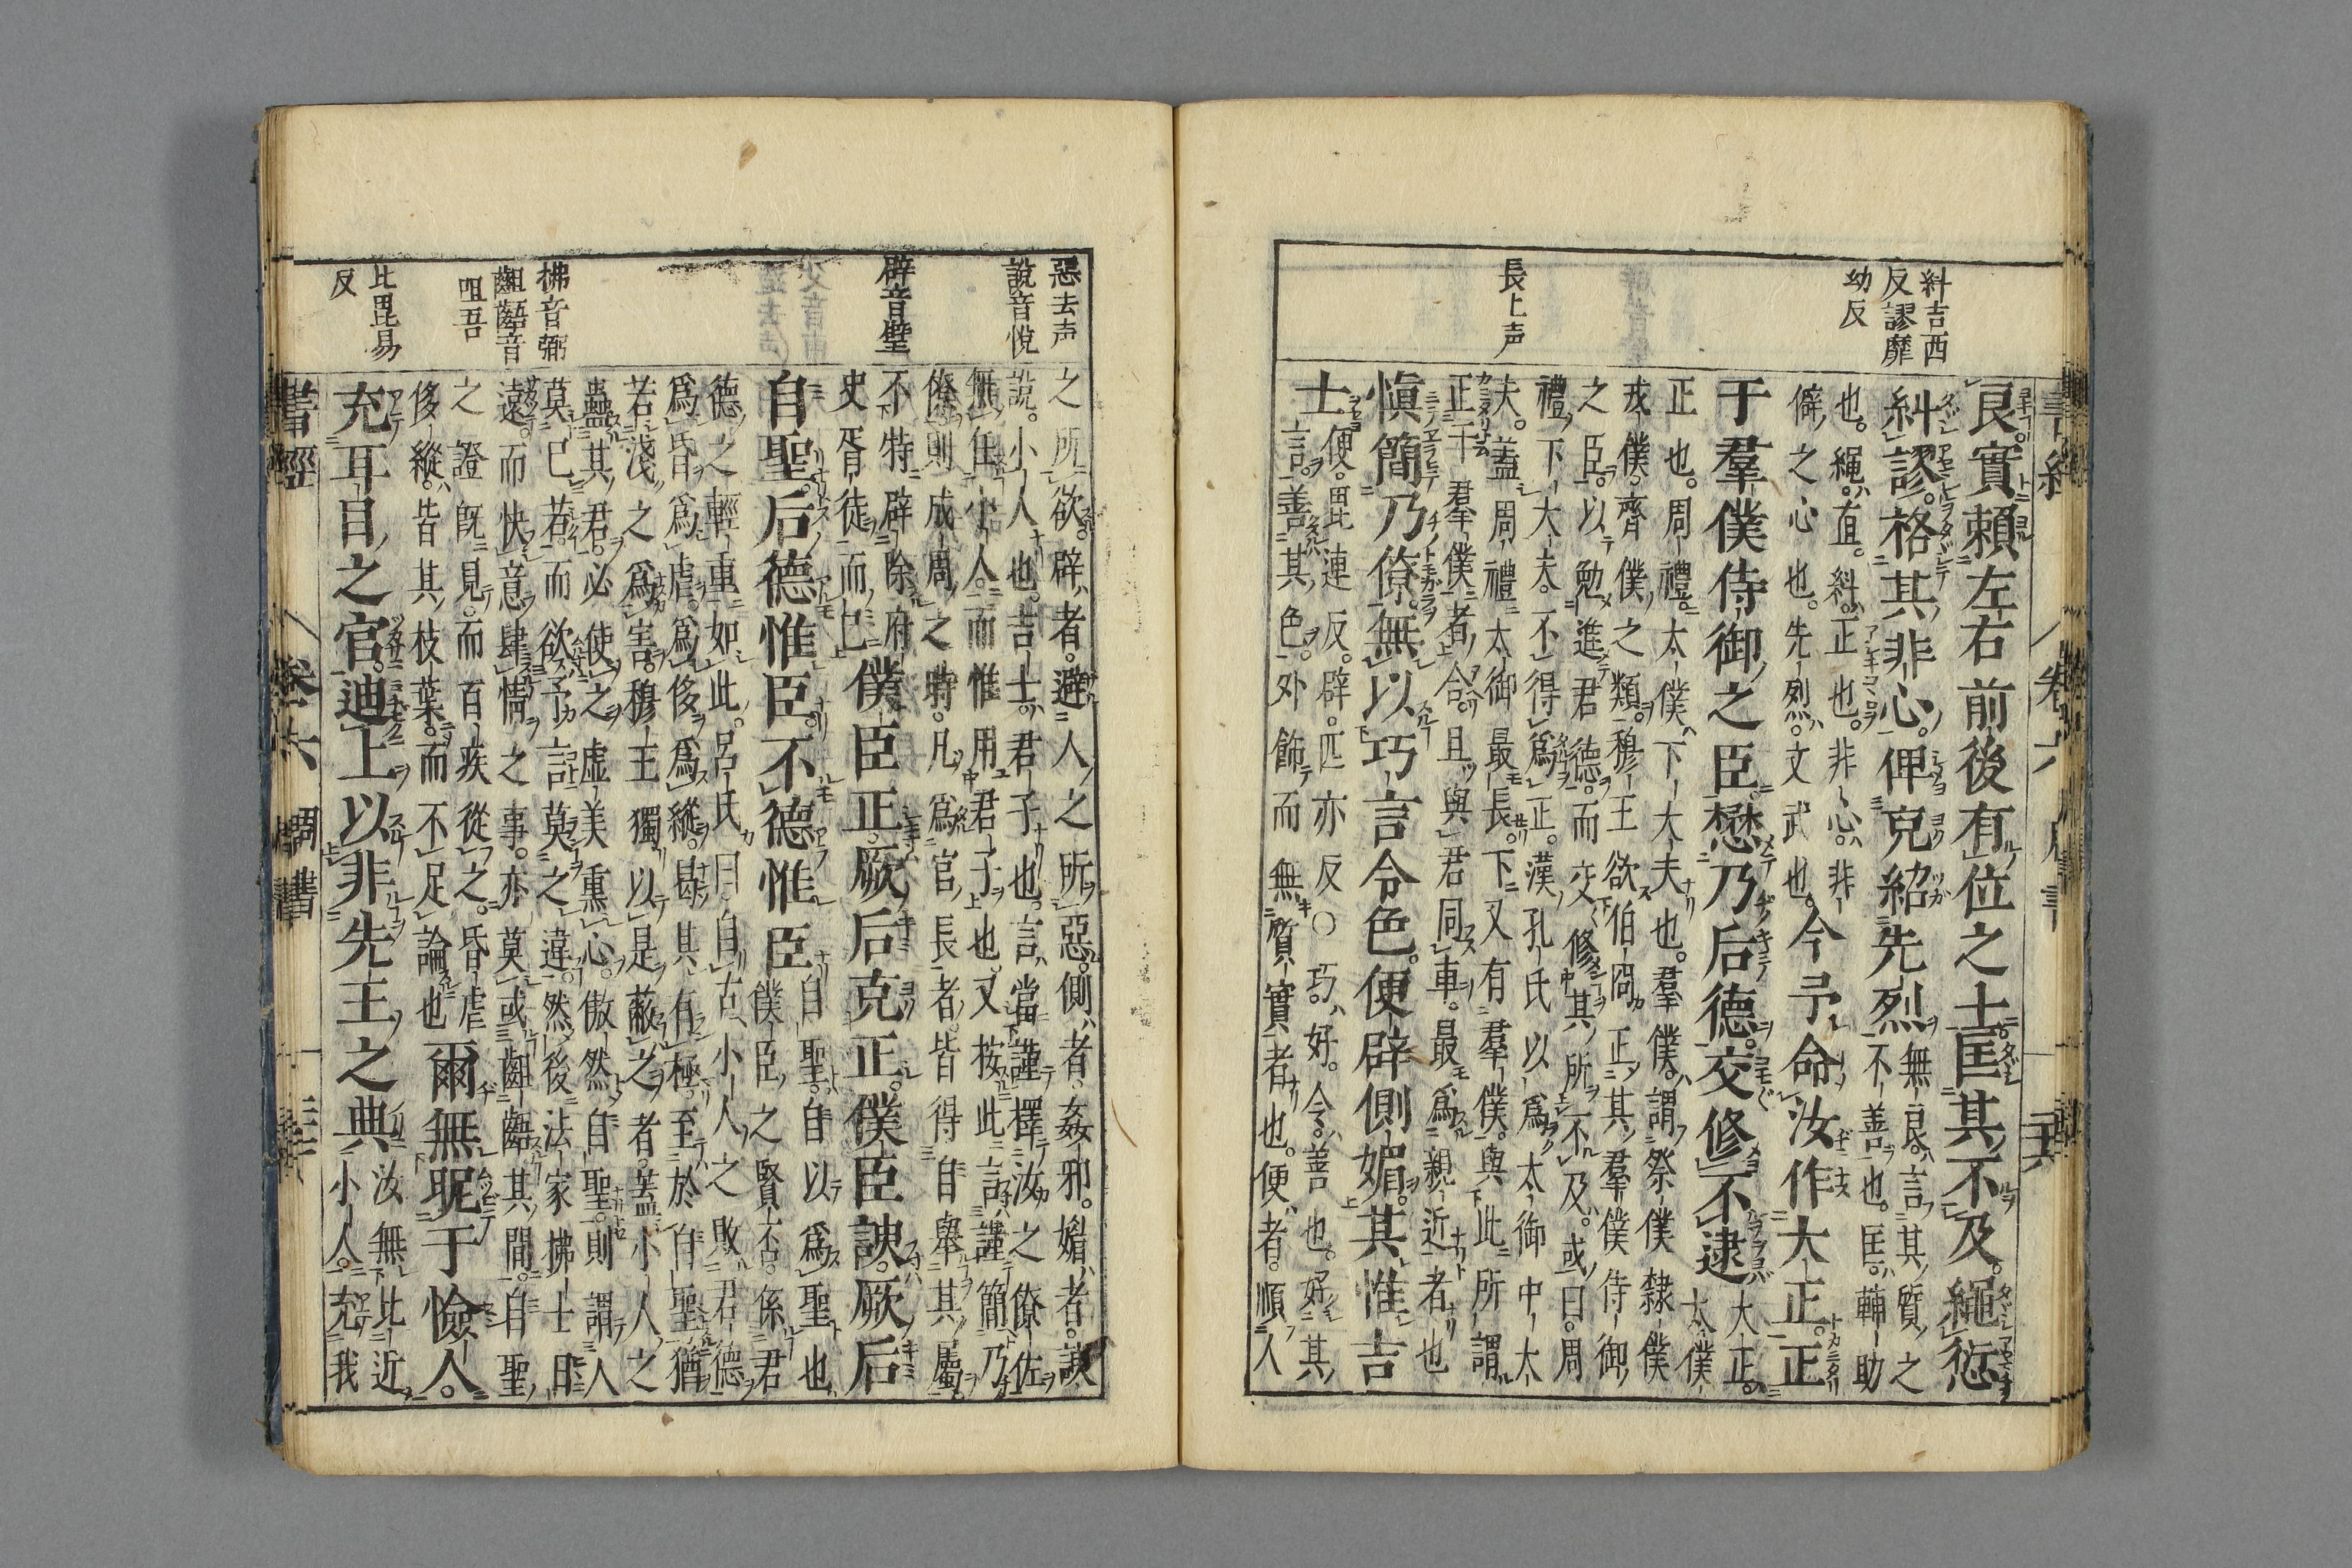 糾吉酉
反謬靡
幼反
長上声
良實賴左右前後有位之士匡其不及繩愆
糾謬格其非心俾克紹先烈
無良言其質之
不善也匡輔助
也。繩直。糾正也。非心非
僻之心也。先烈。文武也。
今予命汝作大正。正
于羣僕侍御之臣懋乃后德。交修不逮
大正。
太僕
正也。周禮太僕下大夫也。羣僕。謂祭僕隸僕
戎僕。齊僕之類。穆王欲伯冏正其羣僕侍御
之臣。以勉進君德。而交修其所不及。或曰。周
禮。下大夫。不得爲正。漢孔氏以爲太御中大
夫。蓋周禮太御最長。下又有羣僕。與此所謂
正于羣僕者合。且與君同車。最爲親近者也
愼簡乃僚。無以巧言令色。便辟側媚。其惟吉
士
便。毘連反。辟。匹亦反○巧。好。令。善也。好其
言。善其色。外飾而無質實者也。便者。順人
惡去声
說音悅
辟音璧
拂音弼
齟齬音
咀吾
比毘易
反
之所欲。辟者。避人之所惡。側者。姦邪。媚者。諛
說。小人也。吉士。君子也。言當謹擇汝之僚佐
無任小人。而惟用君子也。又按此言謹簡乃
僚。則成周之時。凡爲官長者。皆得自舉其屬
不特辟除府
史胥徒而已
僕臣正。厥后克正。僕臣諛。厥后
自聖。后德惟臣。不德惟臣
自聖。自以爲聖也
僕臣之賢否。係君
德之輕重如此。呂氏曰。自古小人之敗君德
爲昏爲虐。爲侈爲縱。曷其有極。至於自聖猶
若淺之爲害。穆王獨以是蔽之者。蓋小人之
蠱其君。必使之虛美熏心。傲然自聖。則謂人
莫己若。而欲予言莫之違。然後法家拂士日
遠。而快意肆情之事。亦莫或齟齬其間。自聖
之證旣見。而百疾從之。昏虐
侈縱。皆其枝葉。而不足論也
爾無昵于憸人。
充耳目之官。迪上以非先王之典
汝無比近
小人。充我
書經 卷六 周書